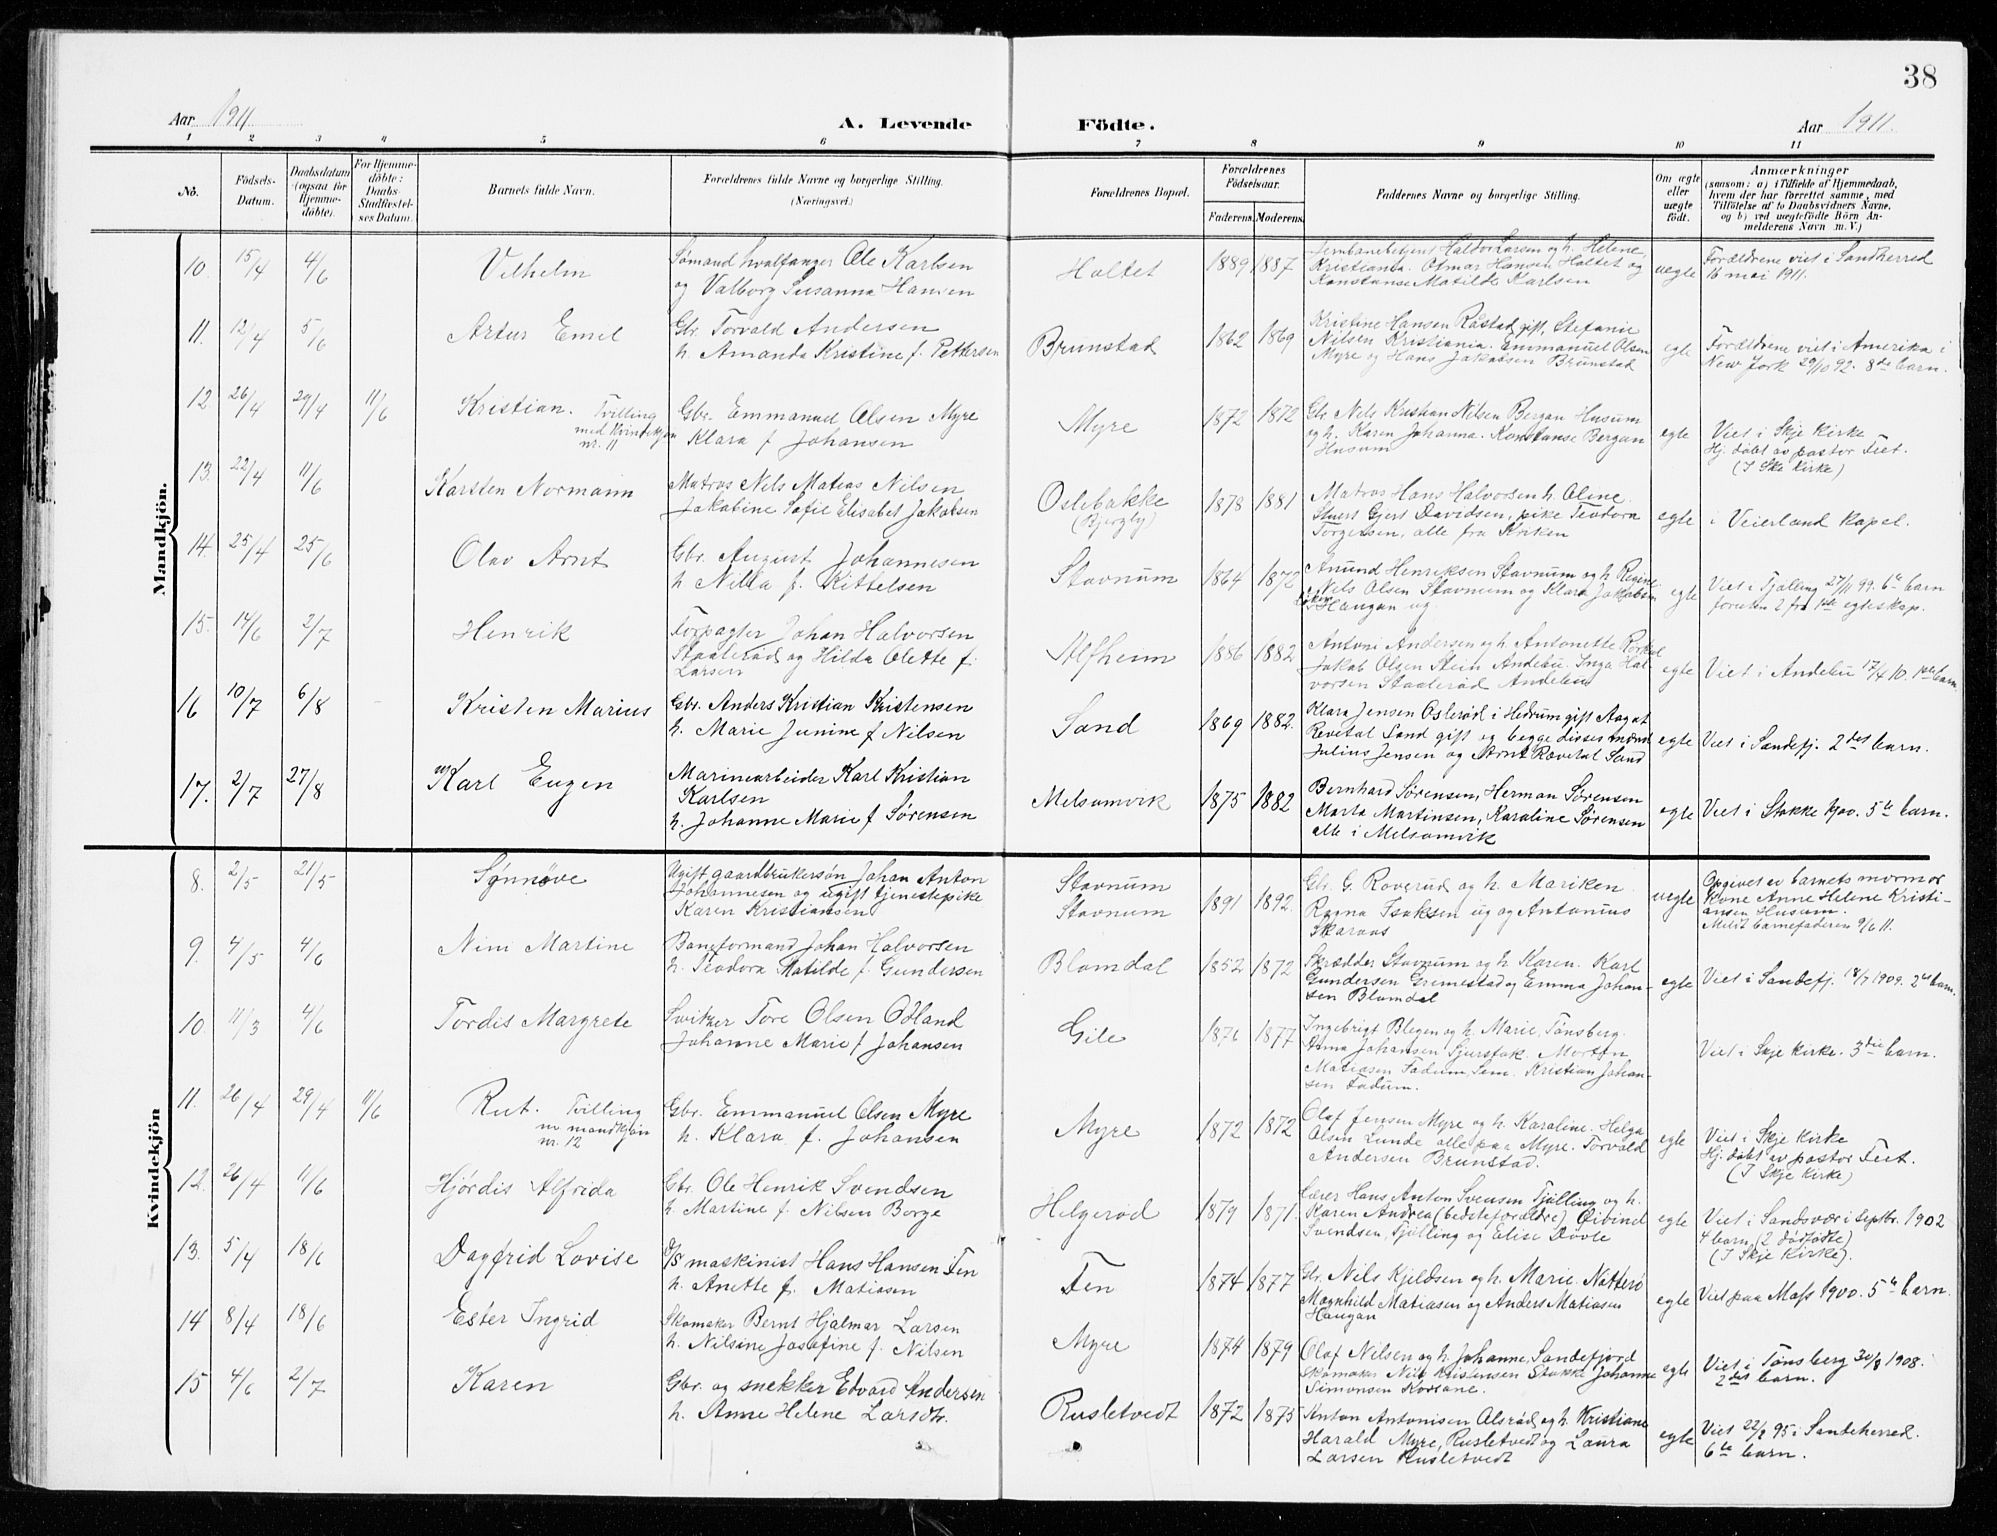 38
Aar 1911. A. Levende Födte. Aar 1911.
1 2 3 4 5 6 7 8 9 10 11
No.
Födsels-
Datum.
Daabsdatum
(ogsaa for
Hjemme-
döbte).
For Hjemme-
döbte:
Daabs-
Stadfæstel-
ses Datum.
Barnets fulde Navn.
Forældrenes fulde Navne og borgerlige Stilling.
(Næringsvei.)
Forældrenes Bopæl.
Forældrenes
Födselsaar.
Faderens. Moderens.
Faddernes Navne og borgerlige Stilling.
Om ægte
eller
uægte
födt.
Anmærkninger
(saasom: a) i Tilfælde af Hjemmedaab,
hvem der har forrettet samme, med
Tilföielse af to Daabsvidners Navne,
og b) ved uægtefödte Börn An-
melderens Navn m. V.)
Mandkjön.
10. 15/4 4/6 Vilhelm
Sømand hvalfanger Ole Karlsen
og Valborg Susanna Hansen
Holtet 1889 1887
Jernbanebetjent Haldor Larsen og h. Helene,
Kristiania. Otmar Hansen Holtet og
Konstanse Matilde Karlsen
uegte
Forældrene viet i Sandherred
16 mai 1911.
11. 12/4 5/6 Artur Emel
Gbr. Torvald Andersen
h. Amanda Kristine f. Pettersen
Brunstad 1862 1869
Kristine Hansen Råstad gift, Stefanie
Nilsen Kristiania. Emmanuel Olsen
Myre og Hans Jakobsen Brunstad
egte
Forældrene viet i Amerika i
New York 29/10 92. 8de barn.
12 26/4 29/4 11/6 Kristian. Tvilling
med Kvindekjøn
nr. 11
Gbr. Emmanuel Olsen Myre
Klara f. Johansen
Myre 1872 1872
Gbr. Nils Kristian Nilsen Bergan Husum
og h. Karen Johanna. Konstanse Bergan
Husum
egte
Viet i Skje Kirke
Hj. døbt av pastor Feet.
(I Skje Kirke)
13. 22/4 11/6 Karsten Normann
Matros Nels Matias Nilsen
Jakobine Sofie Elisabet Jakobsen
Oslebakke
(Bjergby)
1878 1881
Matros Hans Halvorsen h. Oline.
Stuert Gjert Davidsen, pike Teodora
Torgersen, alle fra Kriken
egte
i Veierland Kapel.
14. 25/4 25/6 Olav Arnt
Gbr. August Johannesen
h. Nilla f. Kittelsen
Stavnum 1864 1872
Anund Henriksen Stavnum og h. Regine
Nels Olsen Stavnum og Klara Jakobsen
Haugan ug.
egte
Viet i Tjølling 27/11 99. 6te barn
foruten 2 fra 1ste egteskap.
15. 14/6 2/7 Henrik
Forpagter Johan Halvorsen
Staalerød og Hilda Olette f.
Larsen
Alfheim 1886 1882
Antoni Andersen og h. Antonette Rørkol
Jakob Olsen Stein Andebu Inga Hal-
vorsen Staalerød Andebu
egte
Viet i Andebu 17/4 10. 1ste barn
16 10/7 6/8 Kristen Marius
Gbr. Anders Kristian Kristensen
h. Marie Junine f Nilsen
Sand 1869 1882.
Klara Jensen Oslerød i Hedrum gift Aagot
Revetal Sand gift og begge disses mænd
Julius Jensen og Arnt Revetal Sand
egte
Viet i Sandefj. 2det barn.
17. 2/7 27/8 Karl Eugen
Marinearbeider Karl Kristian
Karlsen
h. Johanne Marie f Sørensen
Melsomvik 1875 1882
Bernhard Sørensen, Herman Sørensen
Marta Martinsen, Karoline Sørensen
alle i Melsomvik
egte
Viet i Stokke 1900. 5te barn.
Kvindekjön
8. 2/5 21/5 Sønnøve
Ugift gaardbrukersøn Johan Anton
Johannesen og ugift tjenestepike
Karen Kristiansen
Stavnum
Stavnum
1891 1892.
Gbr. G. Roverud og h. Mariken
Ragna Isaksen ug og Antonius
Skaraas
uegte
Opgivet av barnets mormor
Kone Anne Helene Kristi-
ansen Husum.
Meldt barnefaderen 9/6 11.
9. 4/5 4/6 Nini Martine
Baneformand Johan Halvorsen
h. Teodora Matilde f. Gundersen
Blomdal 1852 1872
Skrædder Stavnum og h. Karen. Karl
Gundersen Grimestad og Emma Johan-
sen Blomdal
egte
Viet i Sandefj. 18/7 1909. 2det barn.
10. 11/3 4/6 Tordis Margrete
Sveitzer Tore Olsen Odland
Johanne Marie f Johansen
Gile 1876 1877
Ingebrigt Blegen og h. Marie, Tønsberg.
Anna Johansen Sjurstok. Morten
Matiasen Fadum, Sem. Kristian Johan-
sen Fadum.
Viet i Skje Kirke. 3die barn.
11. 26/4 29/4 11/6 Rut. Tvilling
m. mandkjøn
nr. 12
Gbr. Emmanuel Olsen Myre
h. Klara f. Johansen
Myre 1872 1872
Olaf Jensen Myre og h. Karoline. Helga
Olsen Lunde alle paa Myre. Torvald
Andersen Brunstad.
egte
Viet i Skje Kirke
Hj. døbt av pastor Feet.
(I Skje Kirke)
12. 26/4 11/6 Hjørdis Alfrida
Gbr. Ole Henrik Svendsen
h. Martine f. Nilsen Borge
Helgerød 1879 1871.
Lærer Hans Anton Svensen Tjølling og h.
Karen Andrea (bedsteforældre) Øibind
Svendsen, Tjølling og Elise Døvle
egte
Viet i Sandsvær i septbr. 1902
4 barn (2 dødfødte)
(I Skje Kirke).
13. 5/4 18/6 Dagfrid Lovise
D/S maskinist Hans Hansen Fen
h. Anette f. Matiasen
Fen 1874 1877
Gbr. Nils Kjeldsen og h. Marie. Natterø
Magnhild Matiasen og Anders Matiasen
Haugan
egte
Viet paa Moss 1900. 5te barn.
14 8/4 18/6 Ester Ingrid
Skomaker Bernt Hjalmar Larsen
h. Nilsine Josefine f. Nilsen
Myre 1874 1879
Olaf Nilsen og h. Johanne, Sandefjord
Skomaker Nils Kristensen Stokke Johanne
Simonsen Korsane.
egte
Viet i Tønsberg 30/8 1908.
2det barn.
15 4/6 2/7 Karen
Gbr. og snekker Edvard Andersen
h. Anne Helene Larsdtr.
Rusletvedt 1872 1875
Anton Antonisen Olsrød og h. Kristiane
Harald Myre, Rusletvedt og Laura
Larsen Rusletvedt
egte
Viet 22/2 95 i Sandeherred.
6te barn.